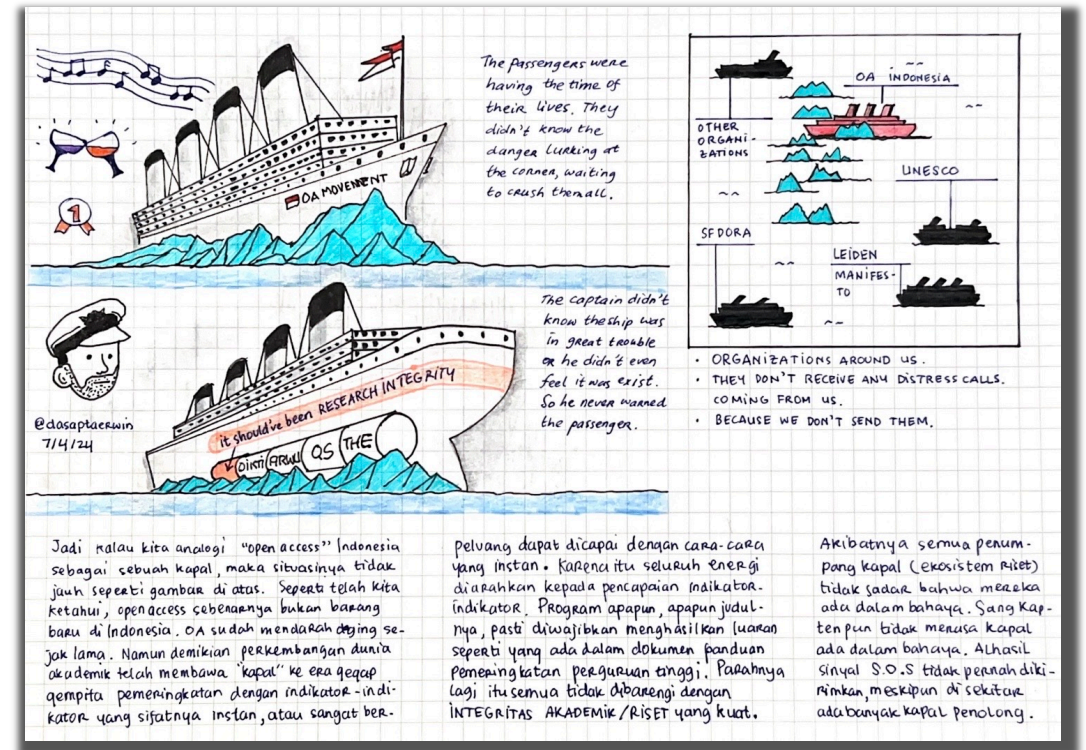 The passengers were
having the time of
their lives. They
didn't know the
danger lurking at
the corner, waiting
to crush them all.
OA MOVEMENT
1
OA INDONESIA
OTHER
ORGANI-
ZATIONS
UNESCO
SFDORA
LEIDEN
MANIFES-
TO
• ORGANIZATIONS AROUND US.
• THEY DON'T RECEIVE ANY DISTRESS CALLS.
COMING FROM US.
• BECAUSE WE DON'T SEND THEM.
The captain didn't
know the ship was
in great trouble
or he didn't even
feel it was exist.
So he never warned
the passenger.
it should've been RESEARCH INTEGRITY
DIKTI ARWU QS THE
@dasaptaerwin
7/4/24
Jadi kalau kita analogi "open access" Indonesia
sebagai sebuah kapal, maka situasinya tidak
jauh seperti gambar di atas. Seperti telah kita
ketahui, open access sebenarnya bukan barang
baru di Indonesia. OA sudah mendarah daging se-
jak lama. Namun demikian perkembangan dunia
akademik telah membawa "kapal" ke era gegap
gempita pemeringkatan dengan indikator-indi-
kator yang sifatnya instan, atau sangat ber-
peluang dapat dicapai dengan cara-cara
yang instan. Karena itu seluruh energi
diarahkan kepada pencapaian indikator-
indikator. Program apapun, apapun judul-
nya, pasti diwajibkan menghasilkan luaran
seperti yang ada dalam dokumen panduan
pemeringkatan perguruan tinggi. Parahnya
lagi itu semua tidak dibarengi dengan
INTEGRITAS AKADEMIK/RISET yang kuat.
Akibatnya semua penum-
pang kapal (ekosistem riset)
tidak sadar bahwa mereka
ada dalam bahaya. Sang kap-
ten pun tidak merasa kapal
ada dalam bahaya. Alhasil
sinyal S.O.S tidak pernah diki-
rimkan, meskipun di sekitar
ada banyak kapal penolong.